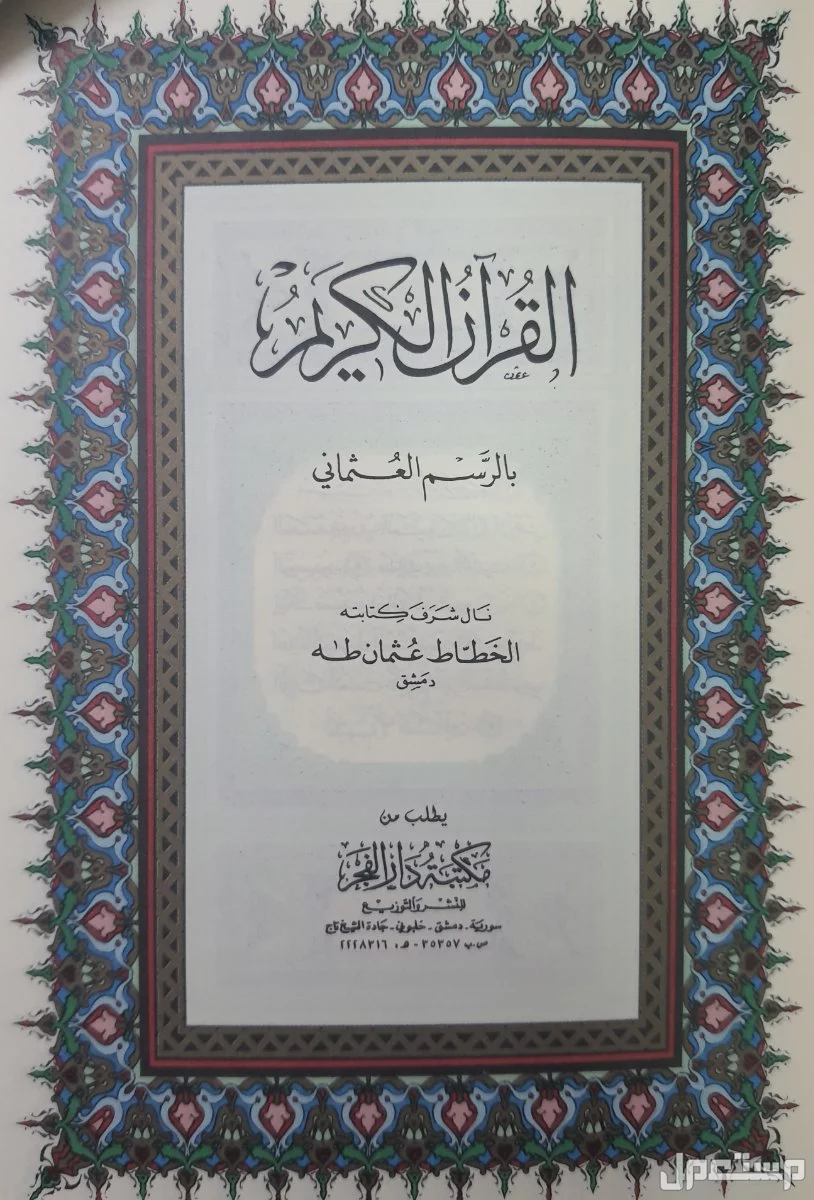 القُرآنُ الكَرِيمُ
بالرَّسْمِ العُثماني
نَال شرَفَ كِتابته
الخَطّاط عُثمان طٰه
دمَشِق
يطلب من
مَكتَبة دَارُ الفَجْر
للنشر والتوزيع
سورية - دمشق - حلبوني - جادة الشيخ تاج
ص.ب ٣٥٣٥٧ - هـ: ٢٢٢٨٣١٦
مستعمل